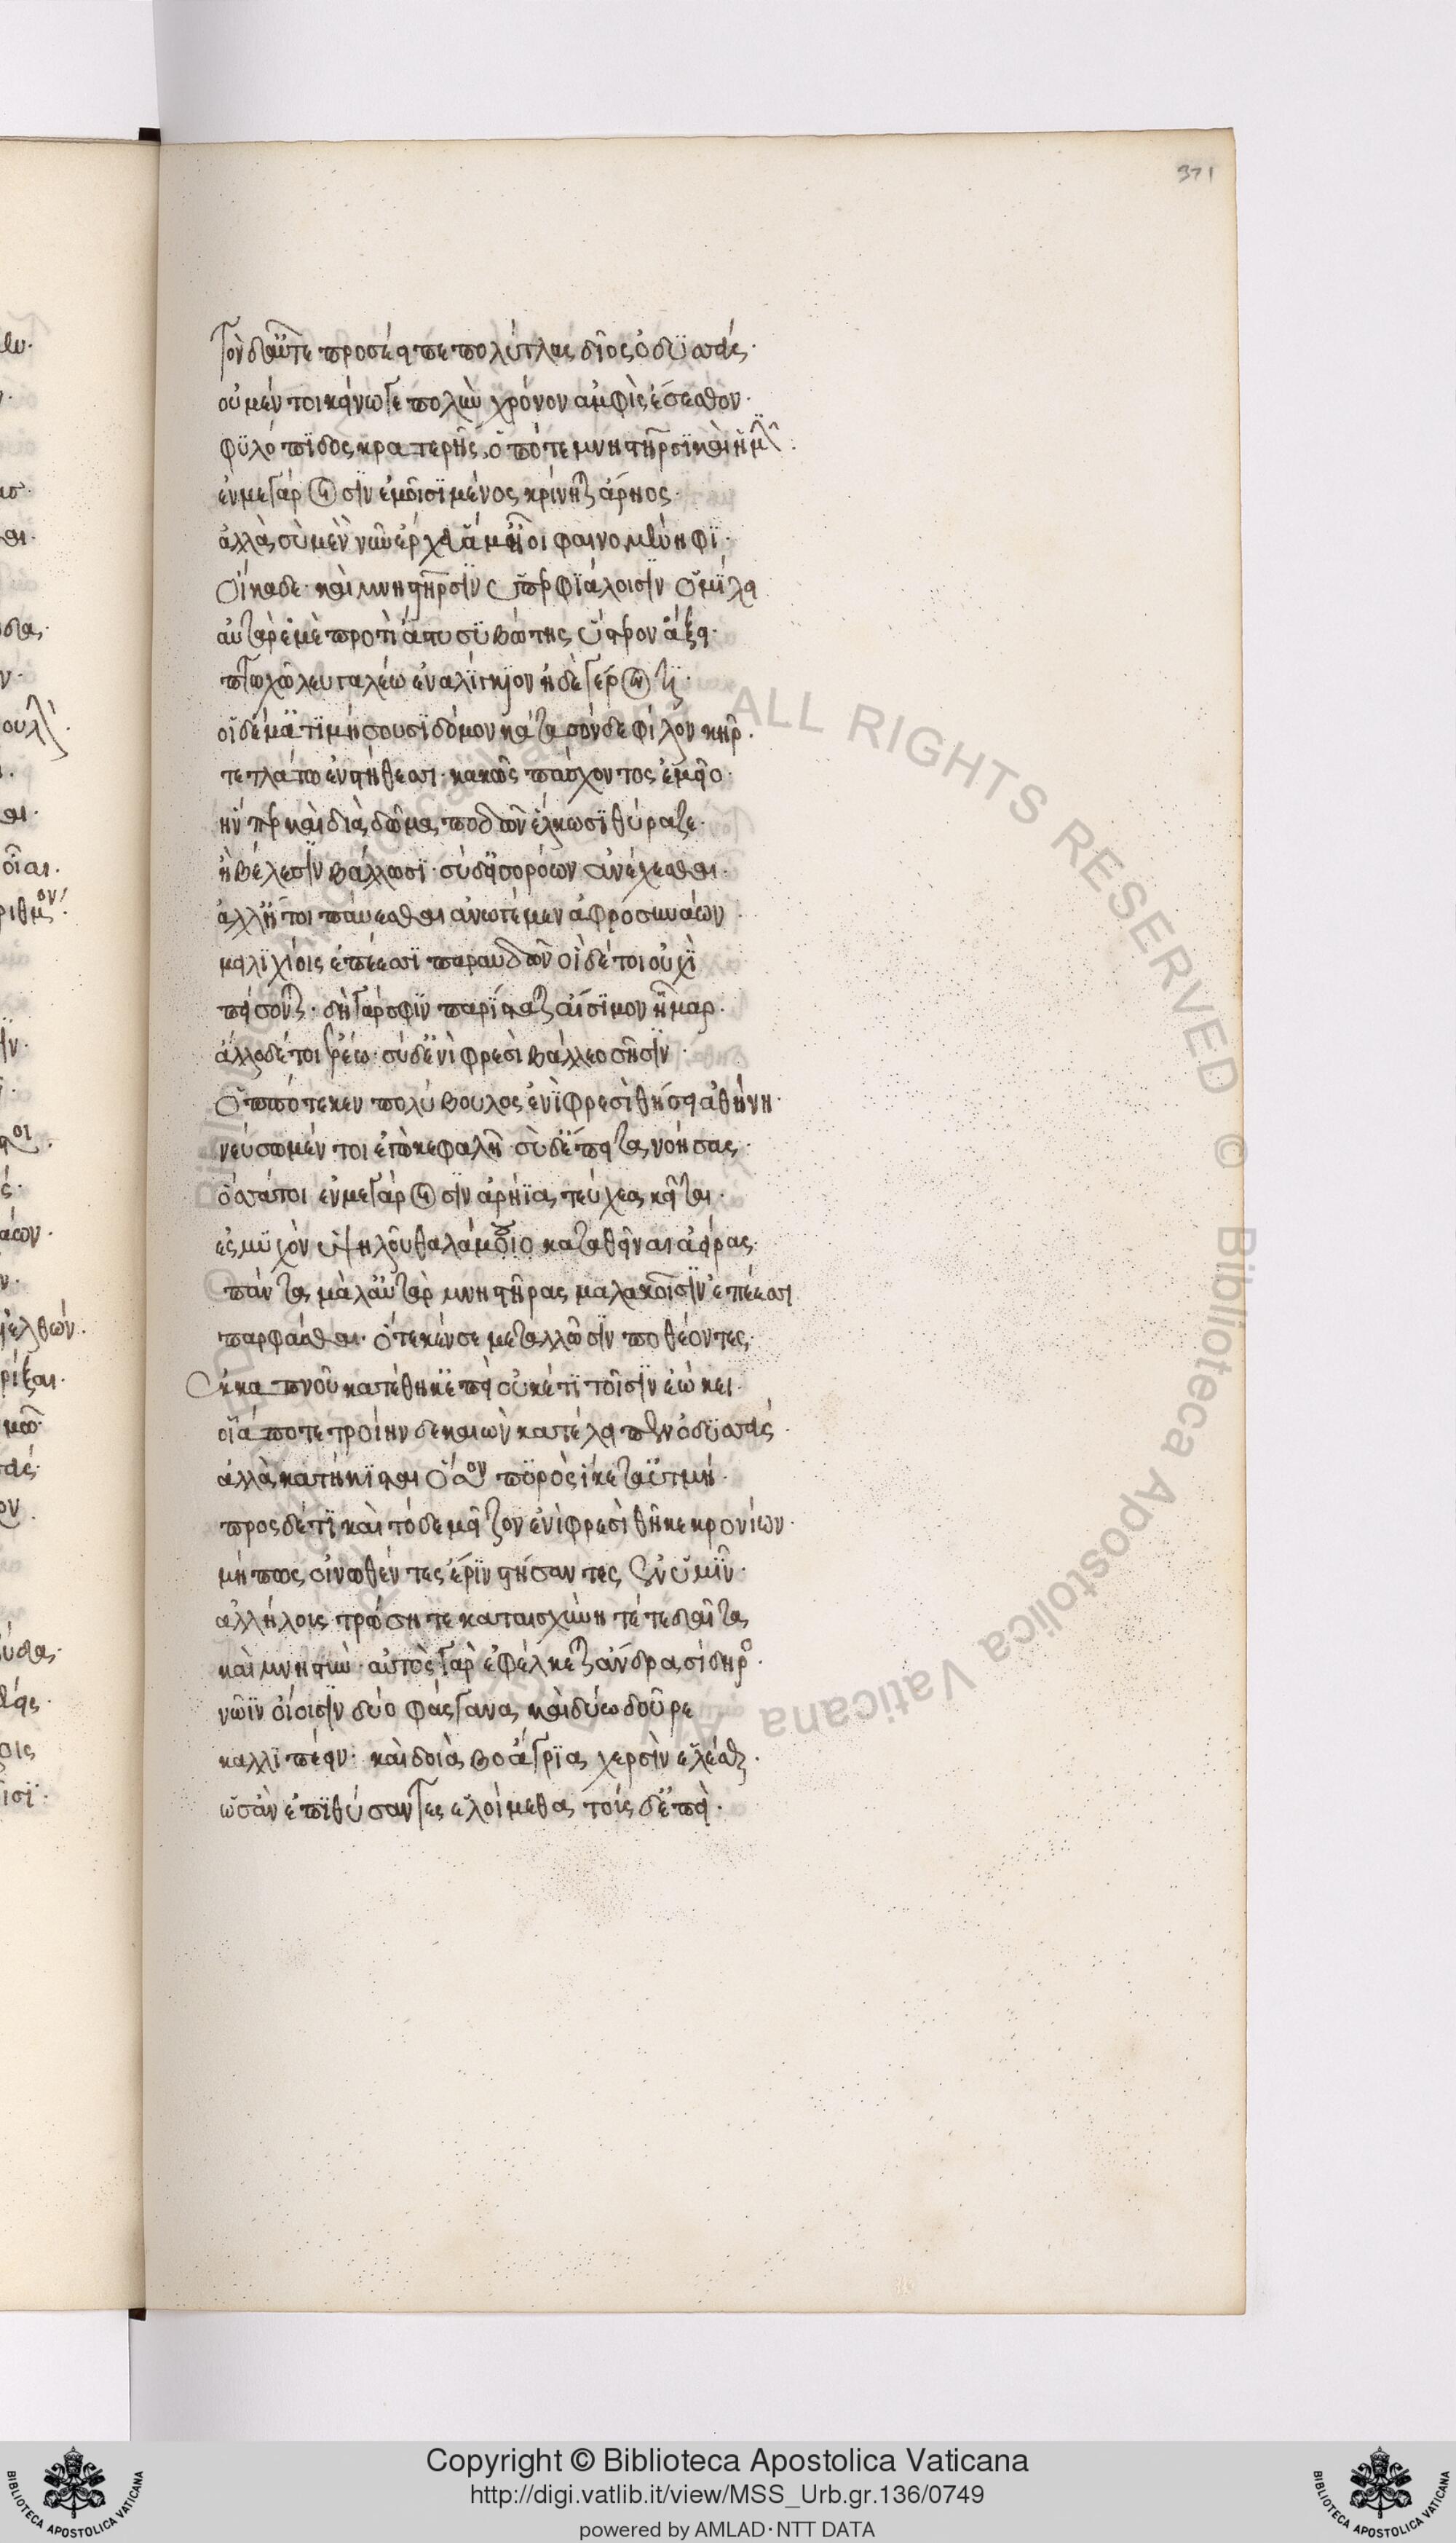 371
Τὸν δ' αὖτε προσέειπε πολύτλας δῖος ὀδϋσσεύς·
οὐ μέν τοι κείνω γε πολὺν χρόνον ἀμφὶς ἔσεσθον·
φϋλόπϊδος κρατερῆς, ὁπότε μνηστῆρσϊ καὶ ἡμῖν·
ἐν μεγάροισϊν ἐμοῖσϊ μένος κρίνηται ἄρηος·
ἀλλὰ σὺ μὲν νῦν ἔρχευ ἅμ' ἠοῖ φαινομένηφϊ·
Οἴκαδε· καὶ μνηστῆρσϊν ὑπερφϊάλοισϊν ὁμίλει
αὐτὰρ ἐμὲ προτὶ ἄστυ συβώτης ὕστερον ἄξει·
πτωχῷ λευγαλέω ἐναλίγκϊον ἠδὲ γέροντϊ·
οἳ δέ μ' ἀτϊμήσουσϊ δόμον κάτα σὸν δὲ φίλον κῆρ·
τετλάτω ἐν στήθεσσι· κακῶς πάσχοντος ἐμεῖο·
ἤν περ καὶ διὰ δῶμα ποδῶν ἕλκωσϊ θύραζε·
ἢ βέλεσϊν βάλλωσϊ· σὺ δ' εἰσορόων ἀνέχεσθαι·
ἀλλ' ἤτοι παύεσθαι ἀνωγέμεν ἀφροσυνάων·
μειλϊχίοις ἐπέεσσϊ παραυδῶν οἱ δέ τοι οὐχὶ
πείσονται· δὴ γάρ σφϊν παρίσταται αἴσϊμον ἦμαρ·
ἄλλο δέ τοι ἐρέω· σὺ δ' ἐνὶ φρεσὶ βάλλεο σῇσϊν·
Ὁππότε κεν πολύβουλος ἐνὶ φρεσὶ θήσει ἀθήνη·
νεύσω μέν τοι ἐγὼ κεφαλῇ σὺ δ' ἔπειτα νοήσας·
ὅσσά τοι ἐν μεγάροισϊν ἀρήϊα τεύχεα κεῖται·
ἐς μϋχὸν ὑψηλοῦ θαλάμοιο καταθεῖναι ἀείρας·
πάντα μάλ' αὐτὰρ μνηστῆρας μαλακοῖσϊν ἐπέεσσι
παρφάσθαι· ὅτε κέν σε μεταλλῶσϊν ποθέοντες·
Ἐκ καπνοῦ κατέθηκ' ἐπεὶ οὐκέτϊ τοῖσϊν ἐῴκει·
οἷά ποτε τροίηνδε κιὼν κατέλειπεν ὀδϋσσεύς·
ἀλλὰ κατῄκισται ὅσσον πϋρὸς ἵκετ' ἀϋτμή·
πρὸς δέ τϊ καὶ τόδε μεῖζον ἐνὶ φρεσὶ θῆκε κρονίων·
μή πως οἰνωθέντες ἔριν στήσαντες ἐν ὑμῖν·
ἀλλήλους τρώσητε καταισχύνητέ τε δαῖτα
καὶ μνηστύν· αὐτὸς γὰρ ἐφέλκεται ἄνδρα σίδηρος·
νῶϊν οἴοισϊν δύο φάσγανα καὶ δύω δοῦρε
καλλϊπέειν· καὶ δοιὰ βοάγρϊα χερσὶν ἑλέσθαι·
ὡς ἂν ἐπϊθύσαντες ἑλοίμεθα τοὺς δ' ἔπειτα·
ALL RIGHTS RESERVED © Biblioteca Apostolica Vaticana
Copyright © Biblioteca Apostolica Vaticana
http://digi.vatlib.it/view/MSS_Urb.gr.136/0749
powered by AMLAD·NTT DATA
BIBLIOTECA APOSTOLICA VATICANA
BIBLIOTECA APOSTOLICA VATICANA